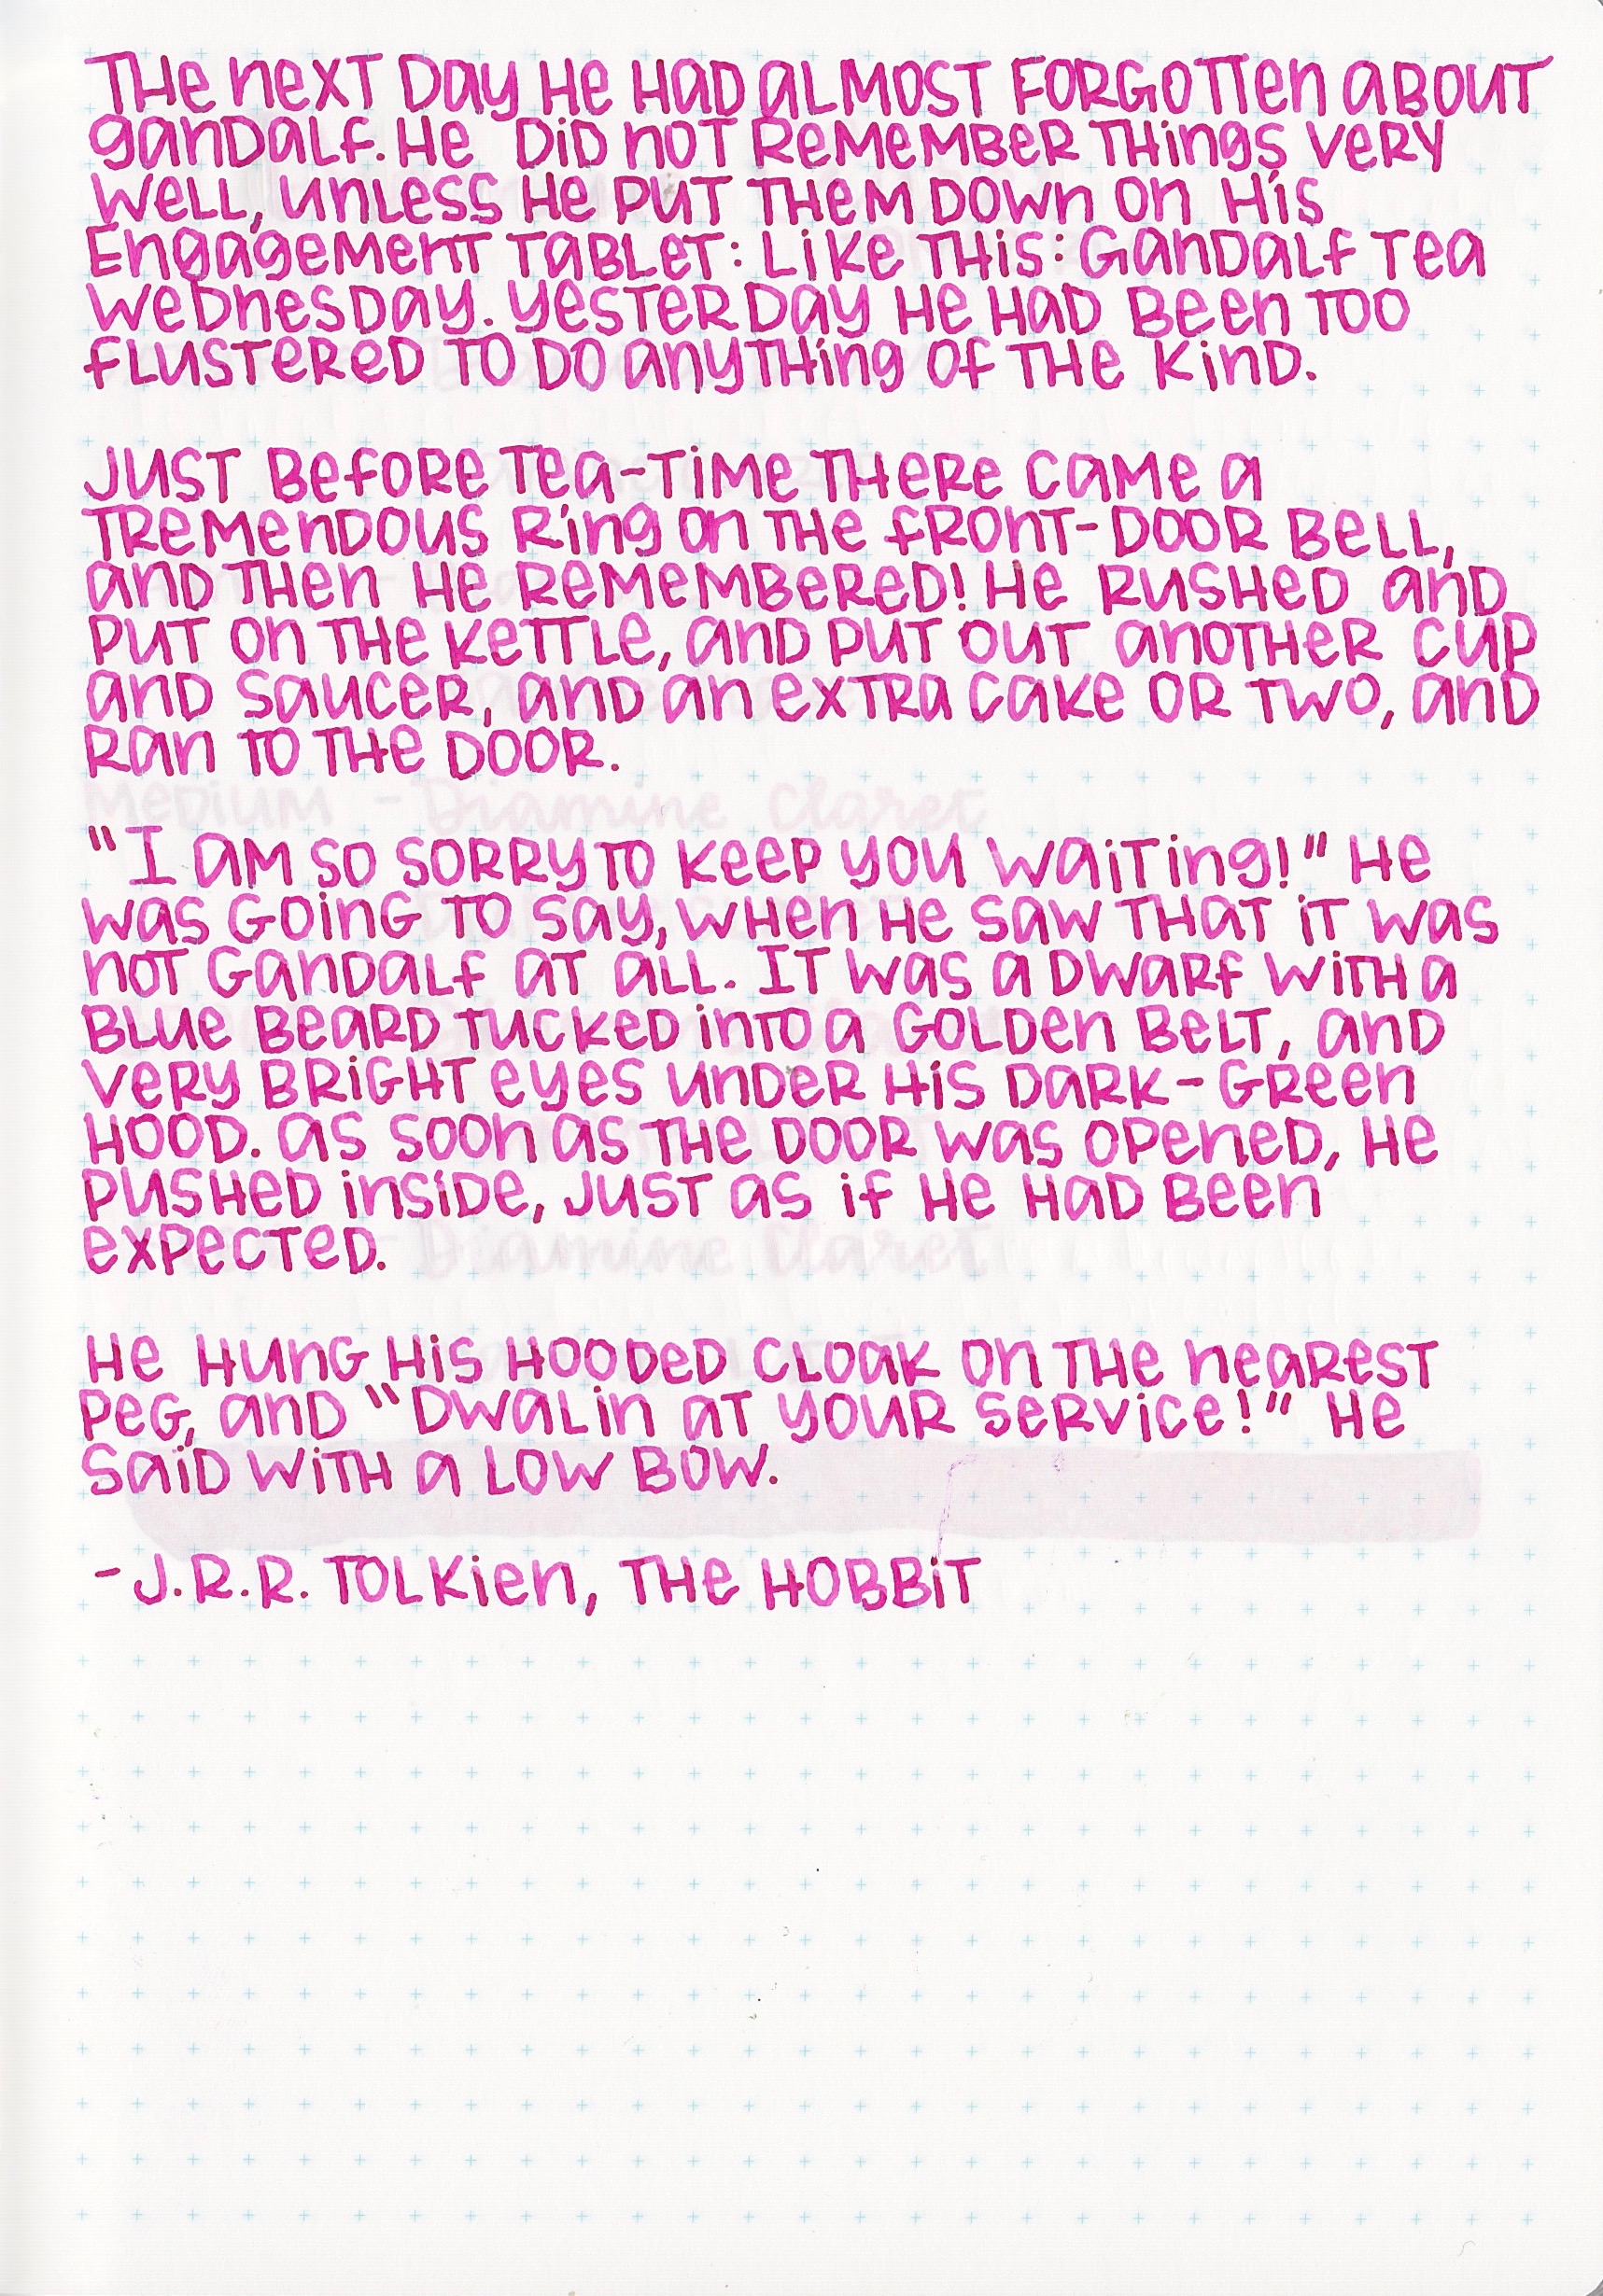 The next day he had almost forgotten about
Gandalf. He did not remember things very
well, unless he put them down on his
Engagement Tablet: Like this: Gandalf Tea
Wednesday. Yesterday he had been too
flustered to do anything of the kind.
Just before tea-time there came a
tremendous ring on the front-door bell,
and then he remembered! He rushed and
put on the kettle, and put out another cup
and saucer, and an extra cake or two, and
ran to the door.
"I am so sorry to keep you waiting!" He
was going to say, when he saw that it was
not Gandalf at all. It was a dwarf with a
blue beard tucked into a golden belt, and
very bright eyes under his dark-green
hood. As soon as the door was opened, he
pushed inside, just as if he had been
expected.
He hung his hooded cloak on the nearest
peg, and "Dwalin at your service!" He
said with a low bow.
-J.R.R. Tolkien, The Hobbit